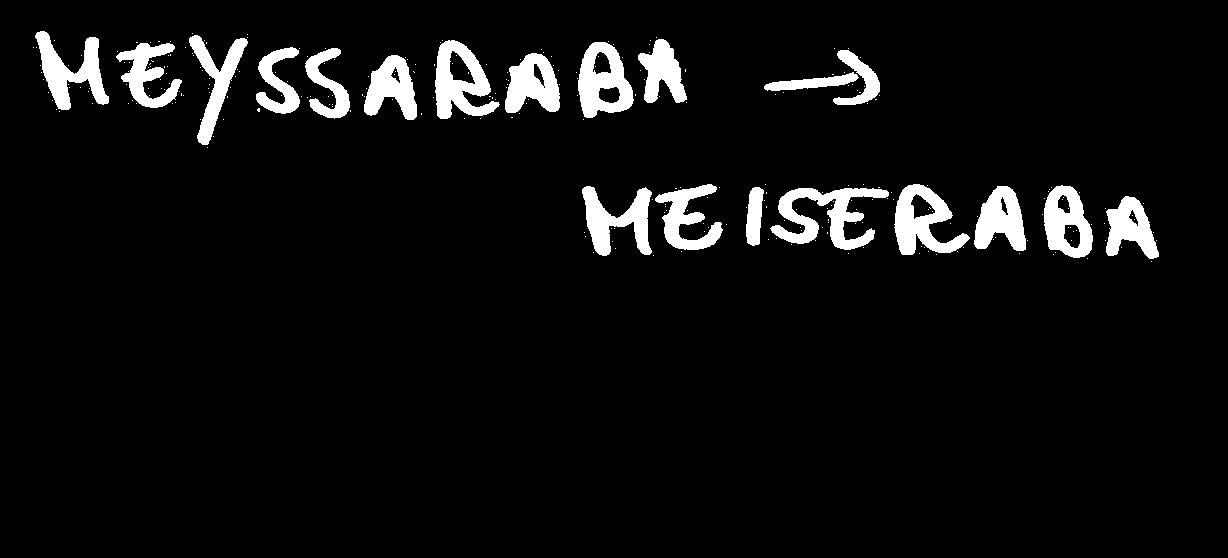 MEYSSARABA →
MEISERABA